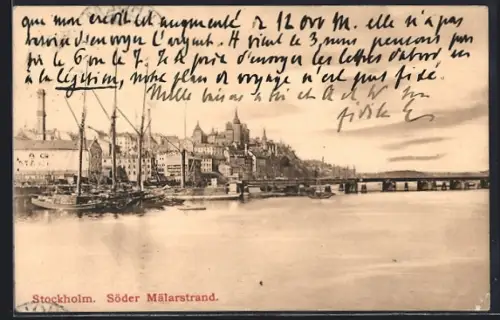 que mon crédit est augmenté de 12 000 M. elle n'a pas
besoin d'envoyer l'argent. H vient le 3, nous pensons
le 6 ou le 7. Je prie d'envoyer les lettres d'abord
à la légation, notre plan de voyage n'est pas fixé.
Mille baisers à toi et
Stockholm. Söder Mälarstrand.